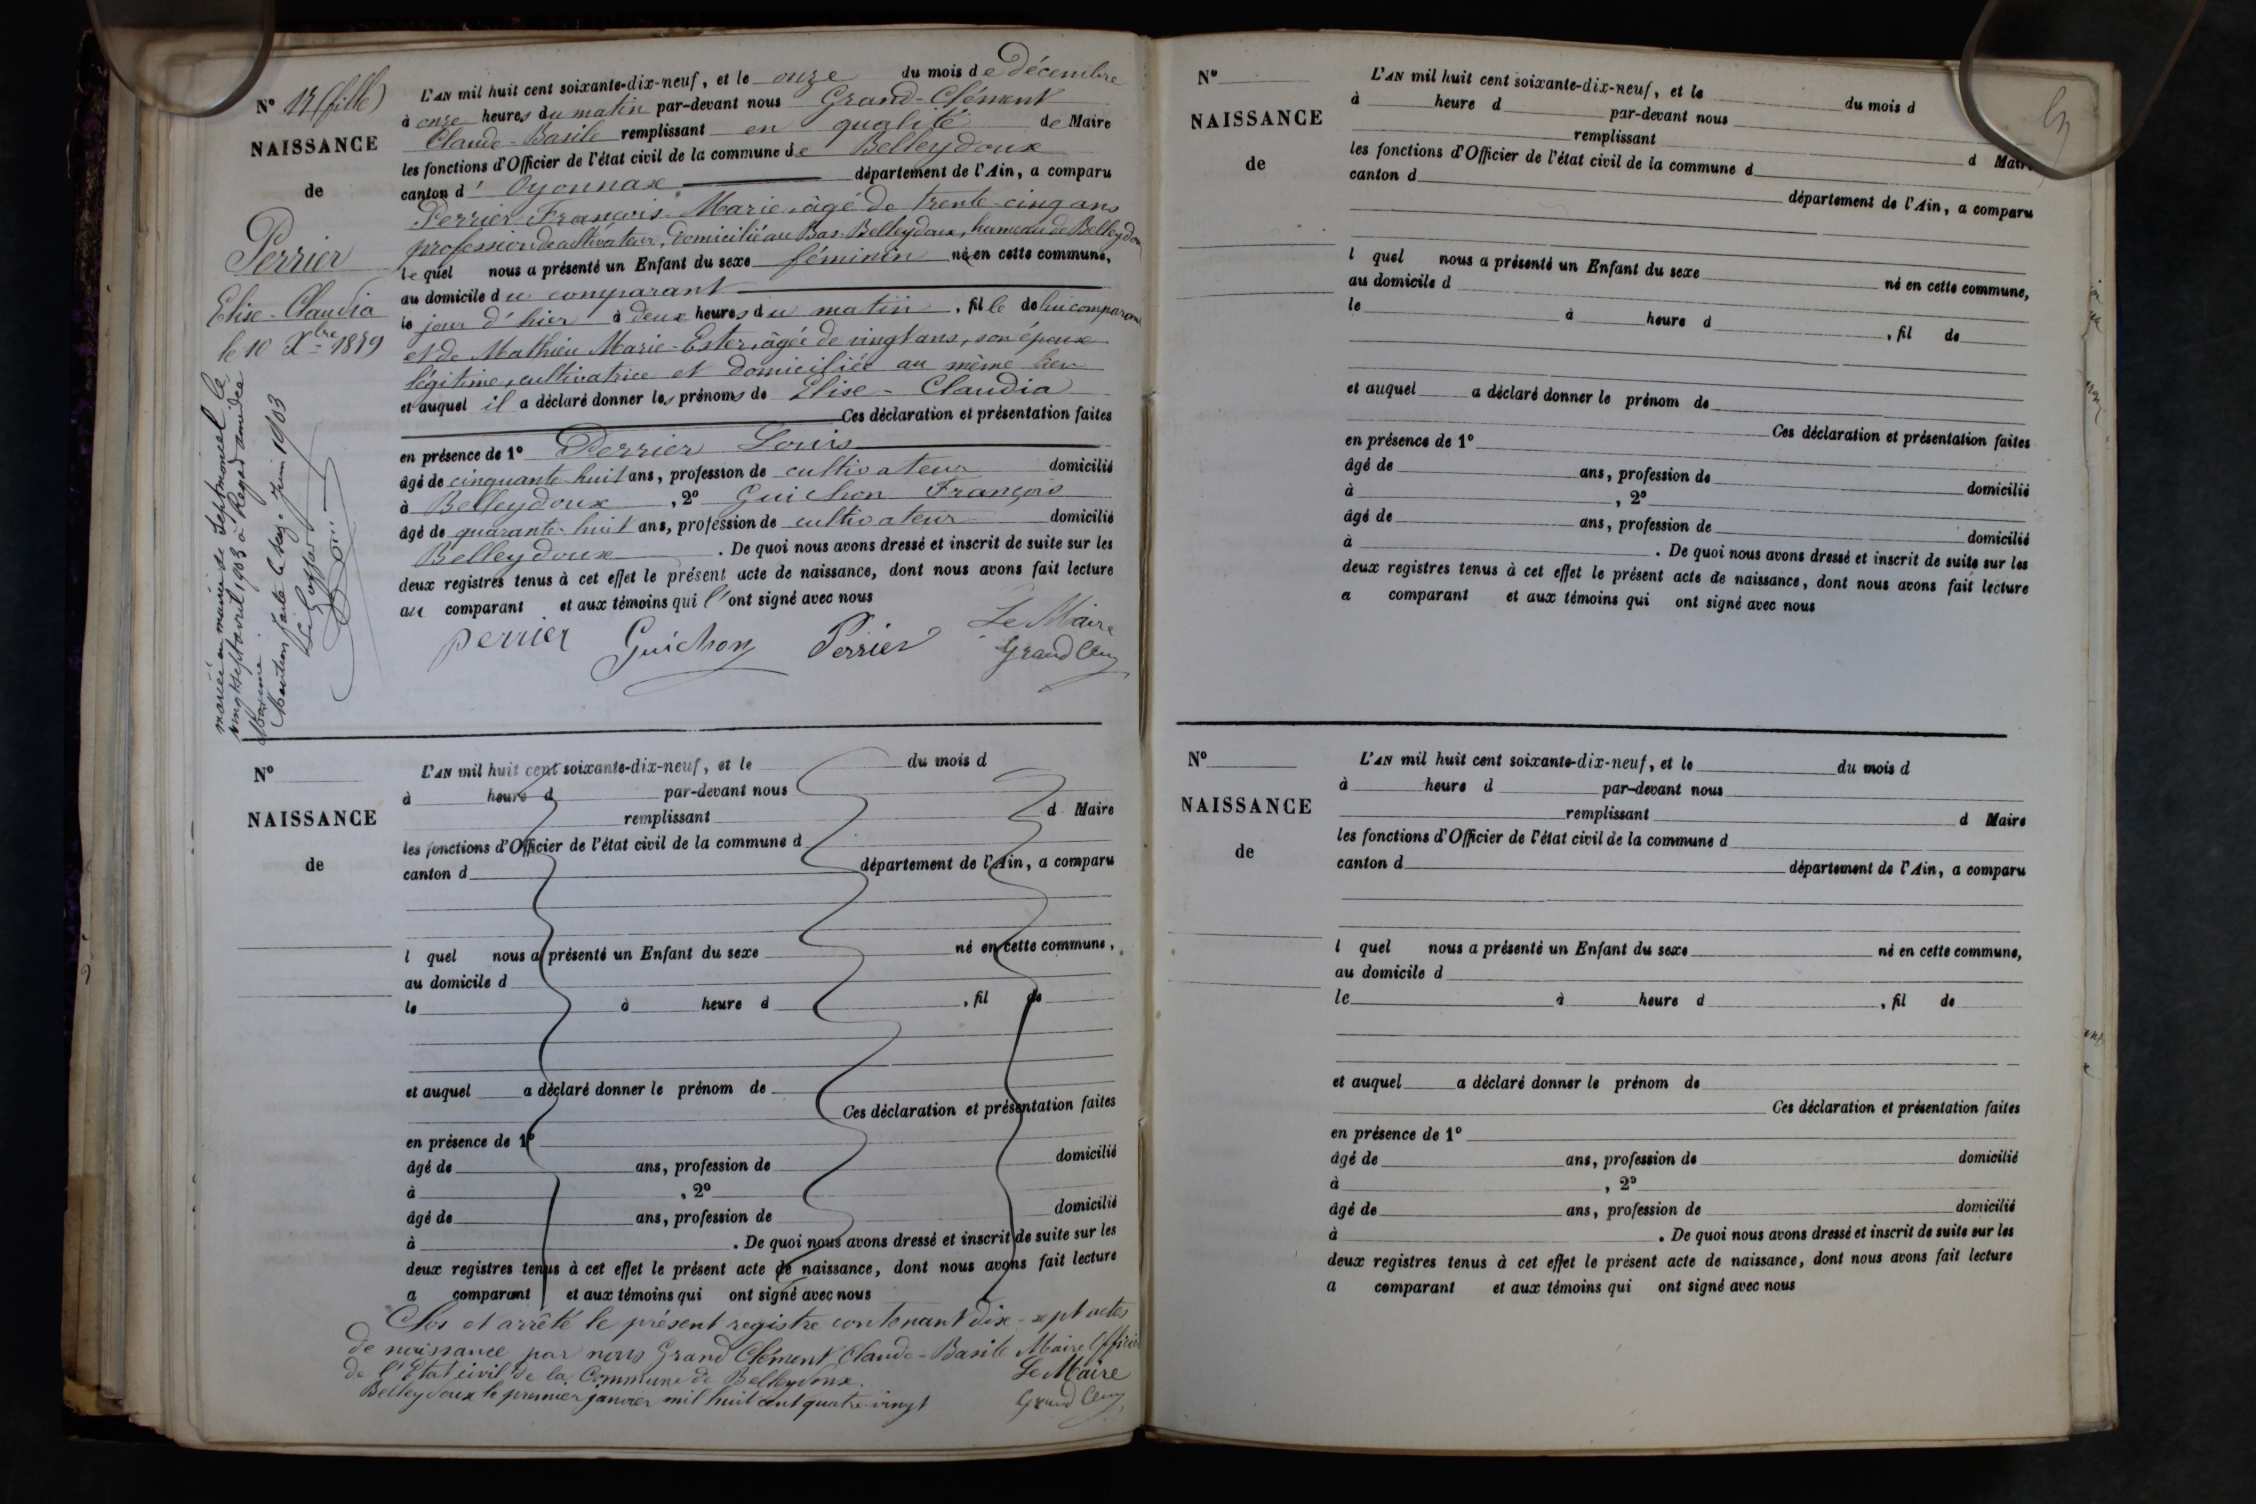 N° 17 (fille)
NAISSANCE
de
Perrier
Elise-Claudia
le 10 Xbre 1879
mariée en mairie de Septmoncel le
vingt sept avril 1903 à Reydamidée
Maxime
Mention faite le seize Juin 1903
L'AN mil huit cent soixante-dix-neuf, et le onze du mois de Décembre
à onze heures du matin par-devant nous Grand-Clément
Claude-Basile remplissant en qualité de Maire
les fonctions d'Officier de l'état civil de la commune de Belleydoux
canton d'Oyonnax département de l'Ain, a comparu
Perrier François-Marie, âgé de trente-cinq ans
profession de cultivateur, domicilié au Bas-Belleydoux, hameau de Belleydoux
lequel nous a présenté un Enfant du sexe féminin né en cette commune,
au domicile du comparant
le jour d'hier à deux heures du matin, fille de lui comparant
et de Mathieu Marie-Ester, âgée de vingt ans, son épouse
légitime, cultivatrice et domiciliée au même lieu
et auquel il a déclaré donner les prénoms de Elise-Claudia
Ces déclaration et présentation faites
en présence de 1° Perrier Louis
âgé de cinquante-huit ans, profession de cultivateur domicilié
à Belleydoux, 2° Guichon François
âgé de quarante-huit ans, profession de cultivateur domicilié
Belleydoux. De quoi nous avons dressé et inscrit de suite sur les
deux registres tenus à cet effet le présent acte de naissance, dont nous avons fait lecture
au comparant et aux témoins qui l'ont signé avec nous
perrier Guichon Perrier Le Maire
Grand Clem
N°
NAISSANCE
de
L'AN mil huit cent soixante-dix-neuf, et le du mois d
à heure d par-devant nous
remplissant d Maire
les fonctions d'Officier de l'état civil de la commune d
canton d département de l'Ain, a comparu
l quel nous a présenté un Enfant du sexe né en cette commune,
au domicile d
le à heure d , fil de
et auquel a déclaré donner le prénom de
Ces déclaration et présentation faites
en présence de 1°
âgé de ans, profession de domicilié
à , 2°
âgé de ans, profession de domicilié
à . De quoi nous avons dressé et inscrit de suite sur les
deux registres tenus à cet effet le présent acte de naissance, dont nous avons fait lecture
a comparant et aux témoins qui ont signé avec nous
Clos et arrêté le présent registre contenant dix-sept actes
de naissance par nous Grand Clément Claude-Basile Maire Officier
de l'Etat civil de la Commune de Belleydoux.
Belleydoux le premier janvier mil huit cent quatre-vingt
Le Maire
Grand Clem
N°
NAISSANCE
de
L'AN mil huit cent soixante-dix-neuf, et le du mois d
à heure d par-devant nous
remplissant d Maire
les fonctions d'Officier de l'état civil de la commune d
canton d département de l'Ain, a comparu
l quel nous a présenté un Enfant du sexe né en cette commune,
au domicile d
le à heure d , fil de
et auquel a déclaré donner le prénom de
Ces déclaration et présentation faites
en présence de 1°
âgé de ans, profession de domicilié
à , 2°
âgé de ans, profession de domicilié
à . De quoi nous avons dressé et inscrit de suite sur les
deux registres tenus à cet effet le présent acte de naissance, dont nous avons fait lecture
a comparant et aux témoins qui ont signé avec nous
N°
NAISSANCE
de
L'AN mil huit cent soixante-dix-neuf, et le du mois d
à heure d par-devant nous
remplissant d Maire
les fonctions d'Officier de l'état civil de la commune d
canton d département de l'Ain, a comparu
l quel nous a présenté un Enfant du sexe né en cette commune,
au domicile d
le à heure d , fil de
et auquel a déclaré donner le prénom de
Ces déclaration et présentation faites
en présence de 1°
âgé de ans, profession de domicilié
à , 2°
âgé de ans, profession de domicilié
à . De quoi nous avons dressé et inscrit de suite sur les
deux registres tenus à cet effet le présent acte de naissance, dont nous avons fait lecture
a comparant et aux témoins qui ont signé avec nous